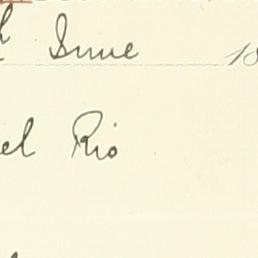 h June 18
el Rio